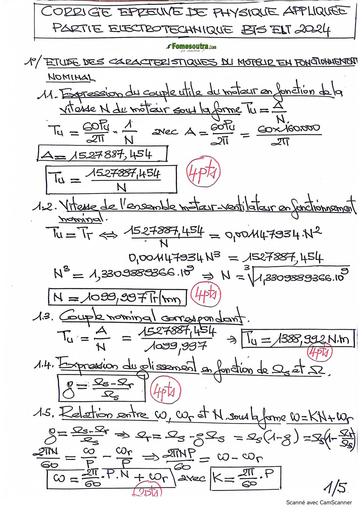 CORRIGE EPREUVE DE PHYSIQUE APPLIQUEE
PARTIE ELECTROTECHNIQUE BTS ELT 2024
Fomesoutra.com
1°/ ETUDE DES CARACTERISTIQUES DU MOTEUR EN FONCTIONNEMENT
NOMINAL
1.1. Expression du couple utile du moteur en fonction de la
vitesse N du moteur sous la forme Tu = A/N
Tu = 60Pu/2π · 1/N avec A = 60Pu/2π = 60×160000/2π
A = 1527887,454
Tu = 1527887,454/N
4pts
1.2. Vitesse de l'ensemble moteur-ventilateur en fonctionnement
nominal.
Tu = Tr ⇔ 1527887,454/N = 0,001147934.N²
0,001147934N³ = 1527887,454
N³ = 1,3309889366.10⁹ ⇒ N = ∛1,3309889366.10⁹
N = 1099,997 Tr/mn
4pts
1.3. Couple nominal correspondant.
Tu = A/N = 1527887,454/1099,997 ⇒ Tu = 1388,992 N.m
4pts
1.4. Expression du glissement en fonction de Ωs et Ω.
g = Ωs-Ωr/Ωs
4pts
1.5. Relation entre ω, ωr et N sous la forme ω=KN+ωr
g = Ωs-Ωr/Ωs ⇒ Ωr = Ωs - gΩs = Ωs(1-g) = Ωs(1-Ωr/Ωs)
2πN/60 = ω/P - ωr/P ⇒ 2πNP/60 = ω-ωr
ω = 2π/60 .P.N + ωr avec K = 2π/60 .P
2pts
1/5
Scanné avec CamScanner